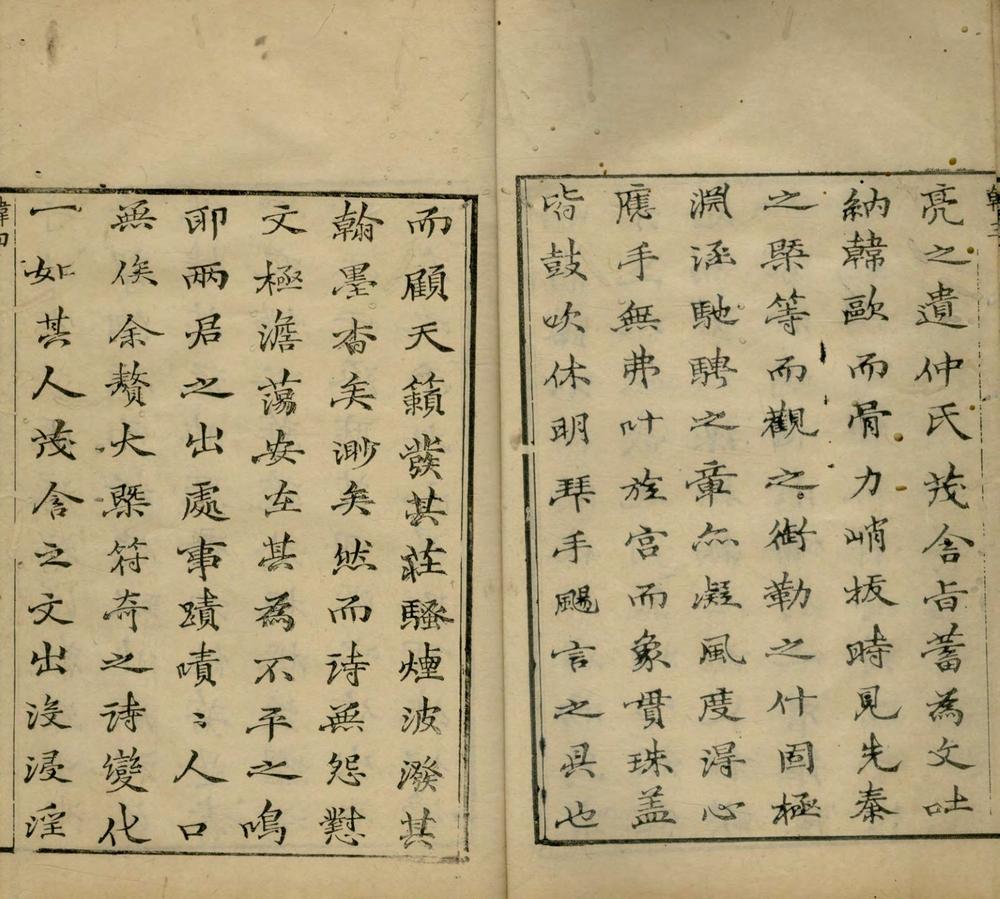 亮之遺仲氏茂含旨蓄為文吐
納韓歐而骨力峭拔時見先秦
之槩等而觀之銜勒之什固極
淵涵馳騁之章亦凝風度得心
應手無弗叶旋宮而象貫珠蓋
皆鼓吹休明拜手颺言之具也
而顧天籟發其莊騷煙波潑其
翰墨杳矣渺矣然而詩無怨懟
文極澹蕩安在其為不平之鳴
耶兩君之出處事蹟嘖〻人口
無俟余贅大槩符奇之詩變化
一如其人茂含之文出沒浸淫